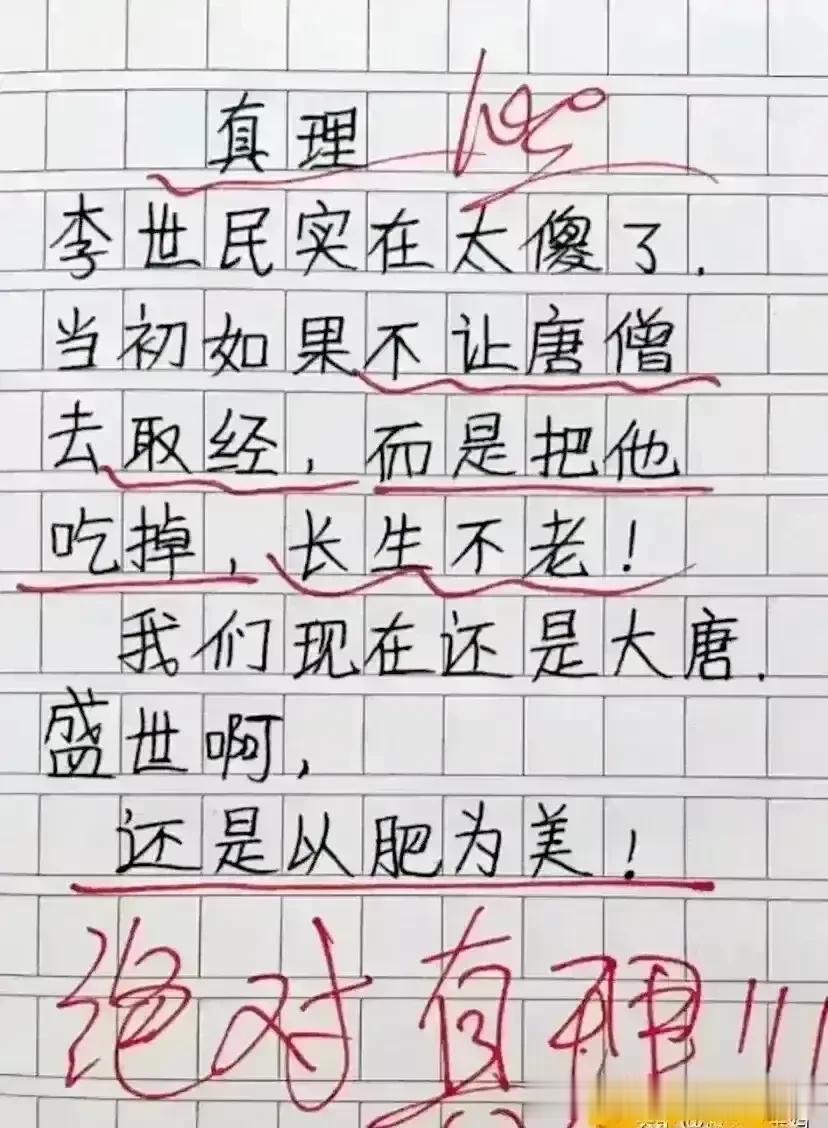 真理 100
李世民实在太傻了.
当初如果不让唐僧
去取经,而是把他
吃掉,长生不老!
我们现在还是大唐.
盛世啊,
还是以肥为美!
绝对真理!!!